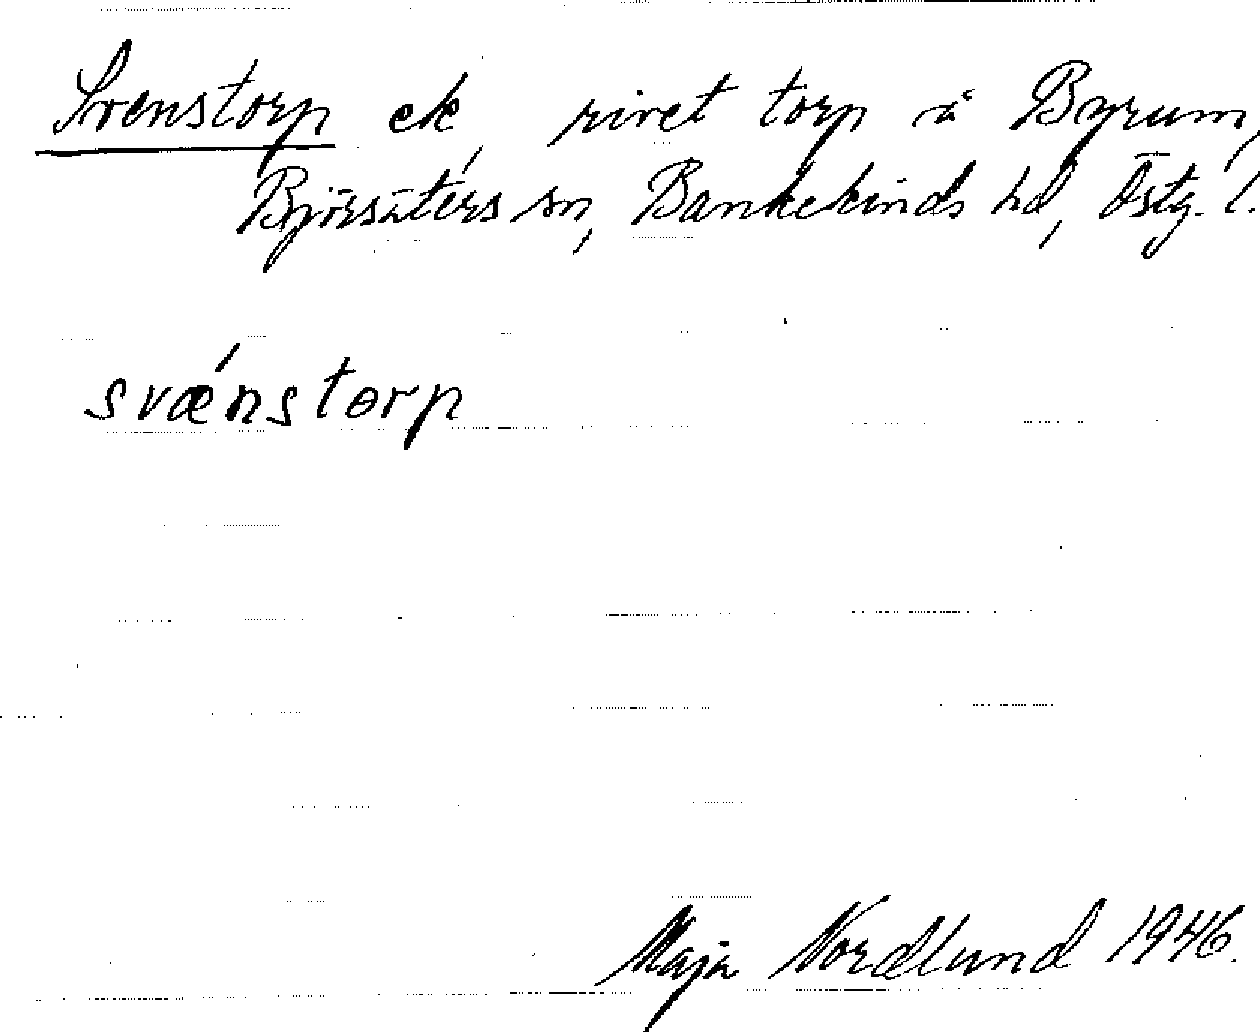 Svenstorp ek, rivet torp å Byrum,
Björsäters sn, Bankekinds hd, Östg. l.
svǽnstorp
Maja Nordlund 1946.